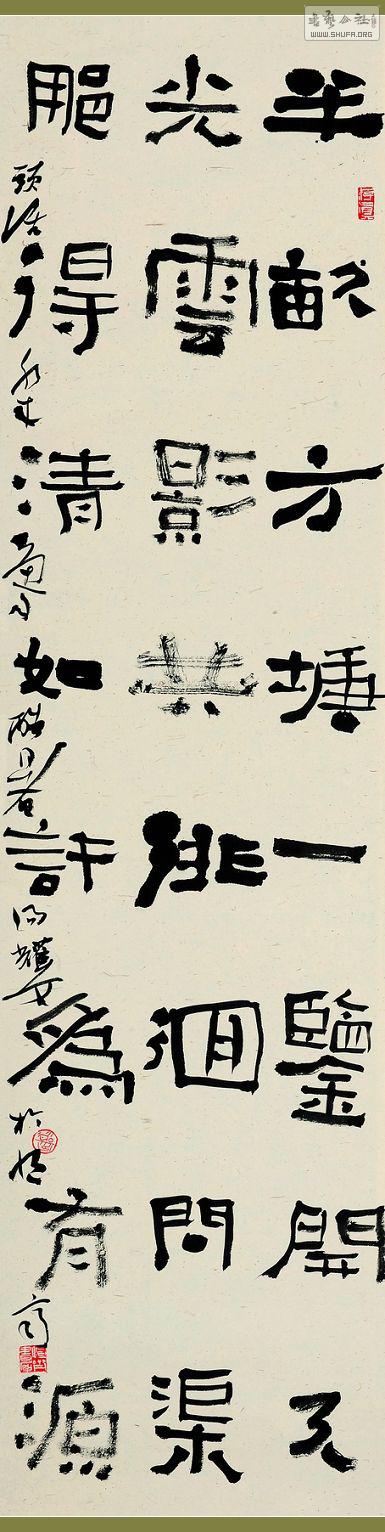 书艺公社
WWW.SHUFA.ORG
半畝方塘一鑒開天
光雲影共徘徊問渠
那得清如許為有源
頭活水來 酷暑 於